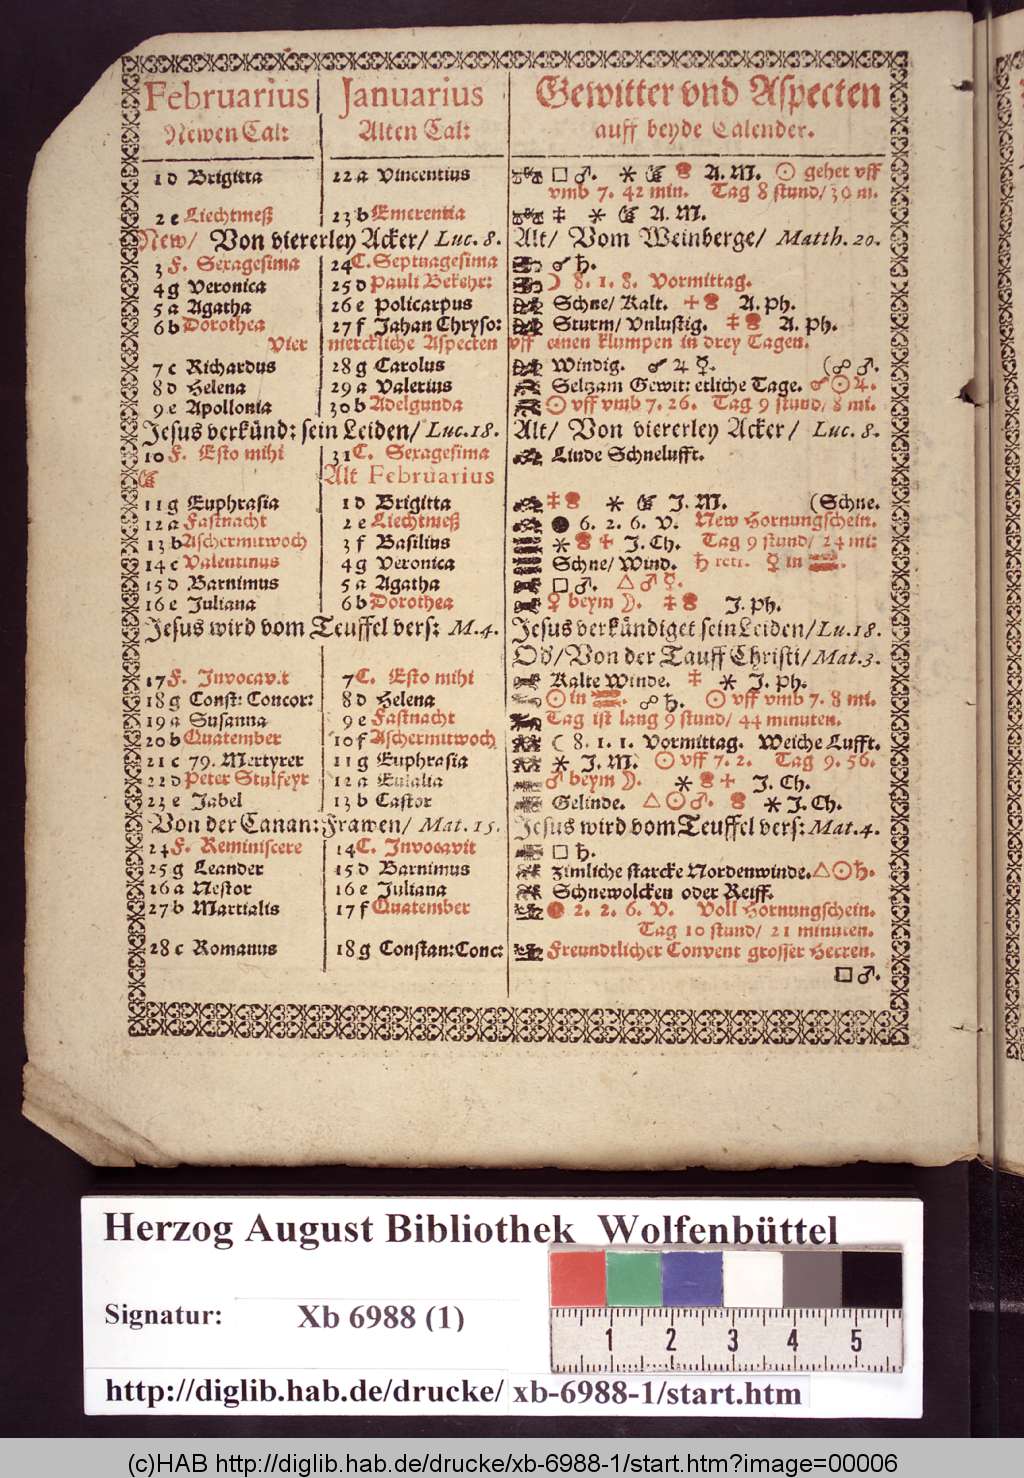 Februarius Januarius Gewitter vnd Aspecten
Newen Cal: Alten Cal: auff beyde Calender.
1 d Brigitta 22 a Vincentius □ ♂. ⚹ A. M. ☉ gehet vff
vmb 7. 42 min. Tag 8 stund/ 30 m.
2 e Liechtmeß 23 b Emerentia ⚹ A. M.
New/ Von viererley Acker/ Luc. 8. Alt/ Vom Weinberge/ Matth. 20.
3 F. Sexagesima 24 C. Septuagesima ☌ ♄.
4 g Veronica 25 d Pauli Bekehr: ☽ 8. 1. 8. Vormittag.
5 a Agatha 26 e Policarpus Schne/ Kalt. A. Ph.
6 b Dorothea 27 f Jahan Chryso: Sturm/ Vnlustig. A. Ph.
Vier merckliche Aspecten vff einen klumpen in drey Tagen.
7 c Richardus 28 g Carolus Windig. ☌ ♃ ☿. (☍ ♂.
8 d Helena 29 a Valerius Seltzam Gewit: etliche Tage. ☌ ☉ ♃.
9 e Apollonia 30 b Adelgunda ☉ vff vmb 7. 26. Tag 9 stund/ 8 mi.
Jesus verkünd: sein Leiden/ Luc. 18. Alt/ Von viererley Acker/ Luc. 8.
10 F. Esto mihi 31 C. Sexagesima Linde Schnelufft.
Alt Februarius
11 g Euphrasia 1 d Brigitta ⚹ J. M. (Schne.
12 a Fastnacht 2 e Liechtmeß ● 6. 2. 6. V. New Hornungschein.
13 b Aschermitwoch 3 f Basilius ⚹ J. Ch. Tag 9 stund/ 24 mi:
14 c Valentinus 4 g Veronica Schne/ Wind. ♄ retr. ☿ in
15 d Barnimus 5 a Agatha □ ♂. △ ♂ ☿.
16 e Juliana 6 b Dorothea ♀ beym ☽. J. Ph.
Jesus wird vom Teuffel vers: M. 4. Jesus verkündiget sein Leiden/ Lu. 18.
Od/ Von der Tauff Christi/ Mat. 3.
17 F. Invocav.t 7 C. Esto mihi Kalte Winde. ⚹ J. Ph.
18 g Const: Concor: 8 d Helena ☉ in ☍ ♄. ☉ vff vmb 7. 8 mi.
19 a Susanna 9 e Fastnacht Tag ist lang 9 stund/ 44 minuten.
20 b Quatember 10 f Aschermitwoch ☾ 8. 1. 1. Vormittag. Weiche Lufft.
21 c 79. Mertyrer 11 g Euphrasia ⚹ J. M. ☉ vff 7. 2. Tag 9. 56.
22 d Peter Stulfeyr 12 a Eulalia ♂ beym ☽. ⚹ J. Ch.
23 e Jabel 13 b Castor Gelinde. △ ☉ ♂. ⚹ J. Ch.
Von der Canan: Frawen/ Mat. 15. Jesus wird vom Teuffel vers: Mat. 4.
24 F. Reminiscere 14 C. Invocavit □ ♄.
25 g Leander 15 d Barnimus zimliche starcke Nordenwinde. △ ☉ ♄.
26 a Nestor 16 e Juliana Schnewolcken oder Reiff.
27 b Martialis 17 f Quatember 2. 2. 6. V. Voll Hornungschein.
Tag 10 stund/ 21 minuten.
28 c Romanus 18 g Constan: Conc: Freundtlicher Convent grosser Herren.
□ ♂.
Herzog August Bibliothek Wolfenbüttel
Signatur: Xb 6988 (1)
1 2 3 4 5
http://diglib.hab.de/drucke/ xb-6988-1/start.htm
(c)HAB http://diglib.hab.de/drucke/xb-6988-1/start.htm?image=00006